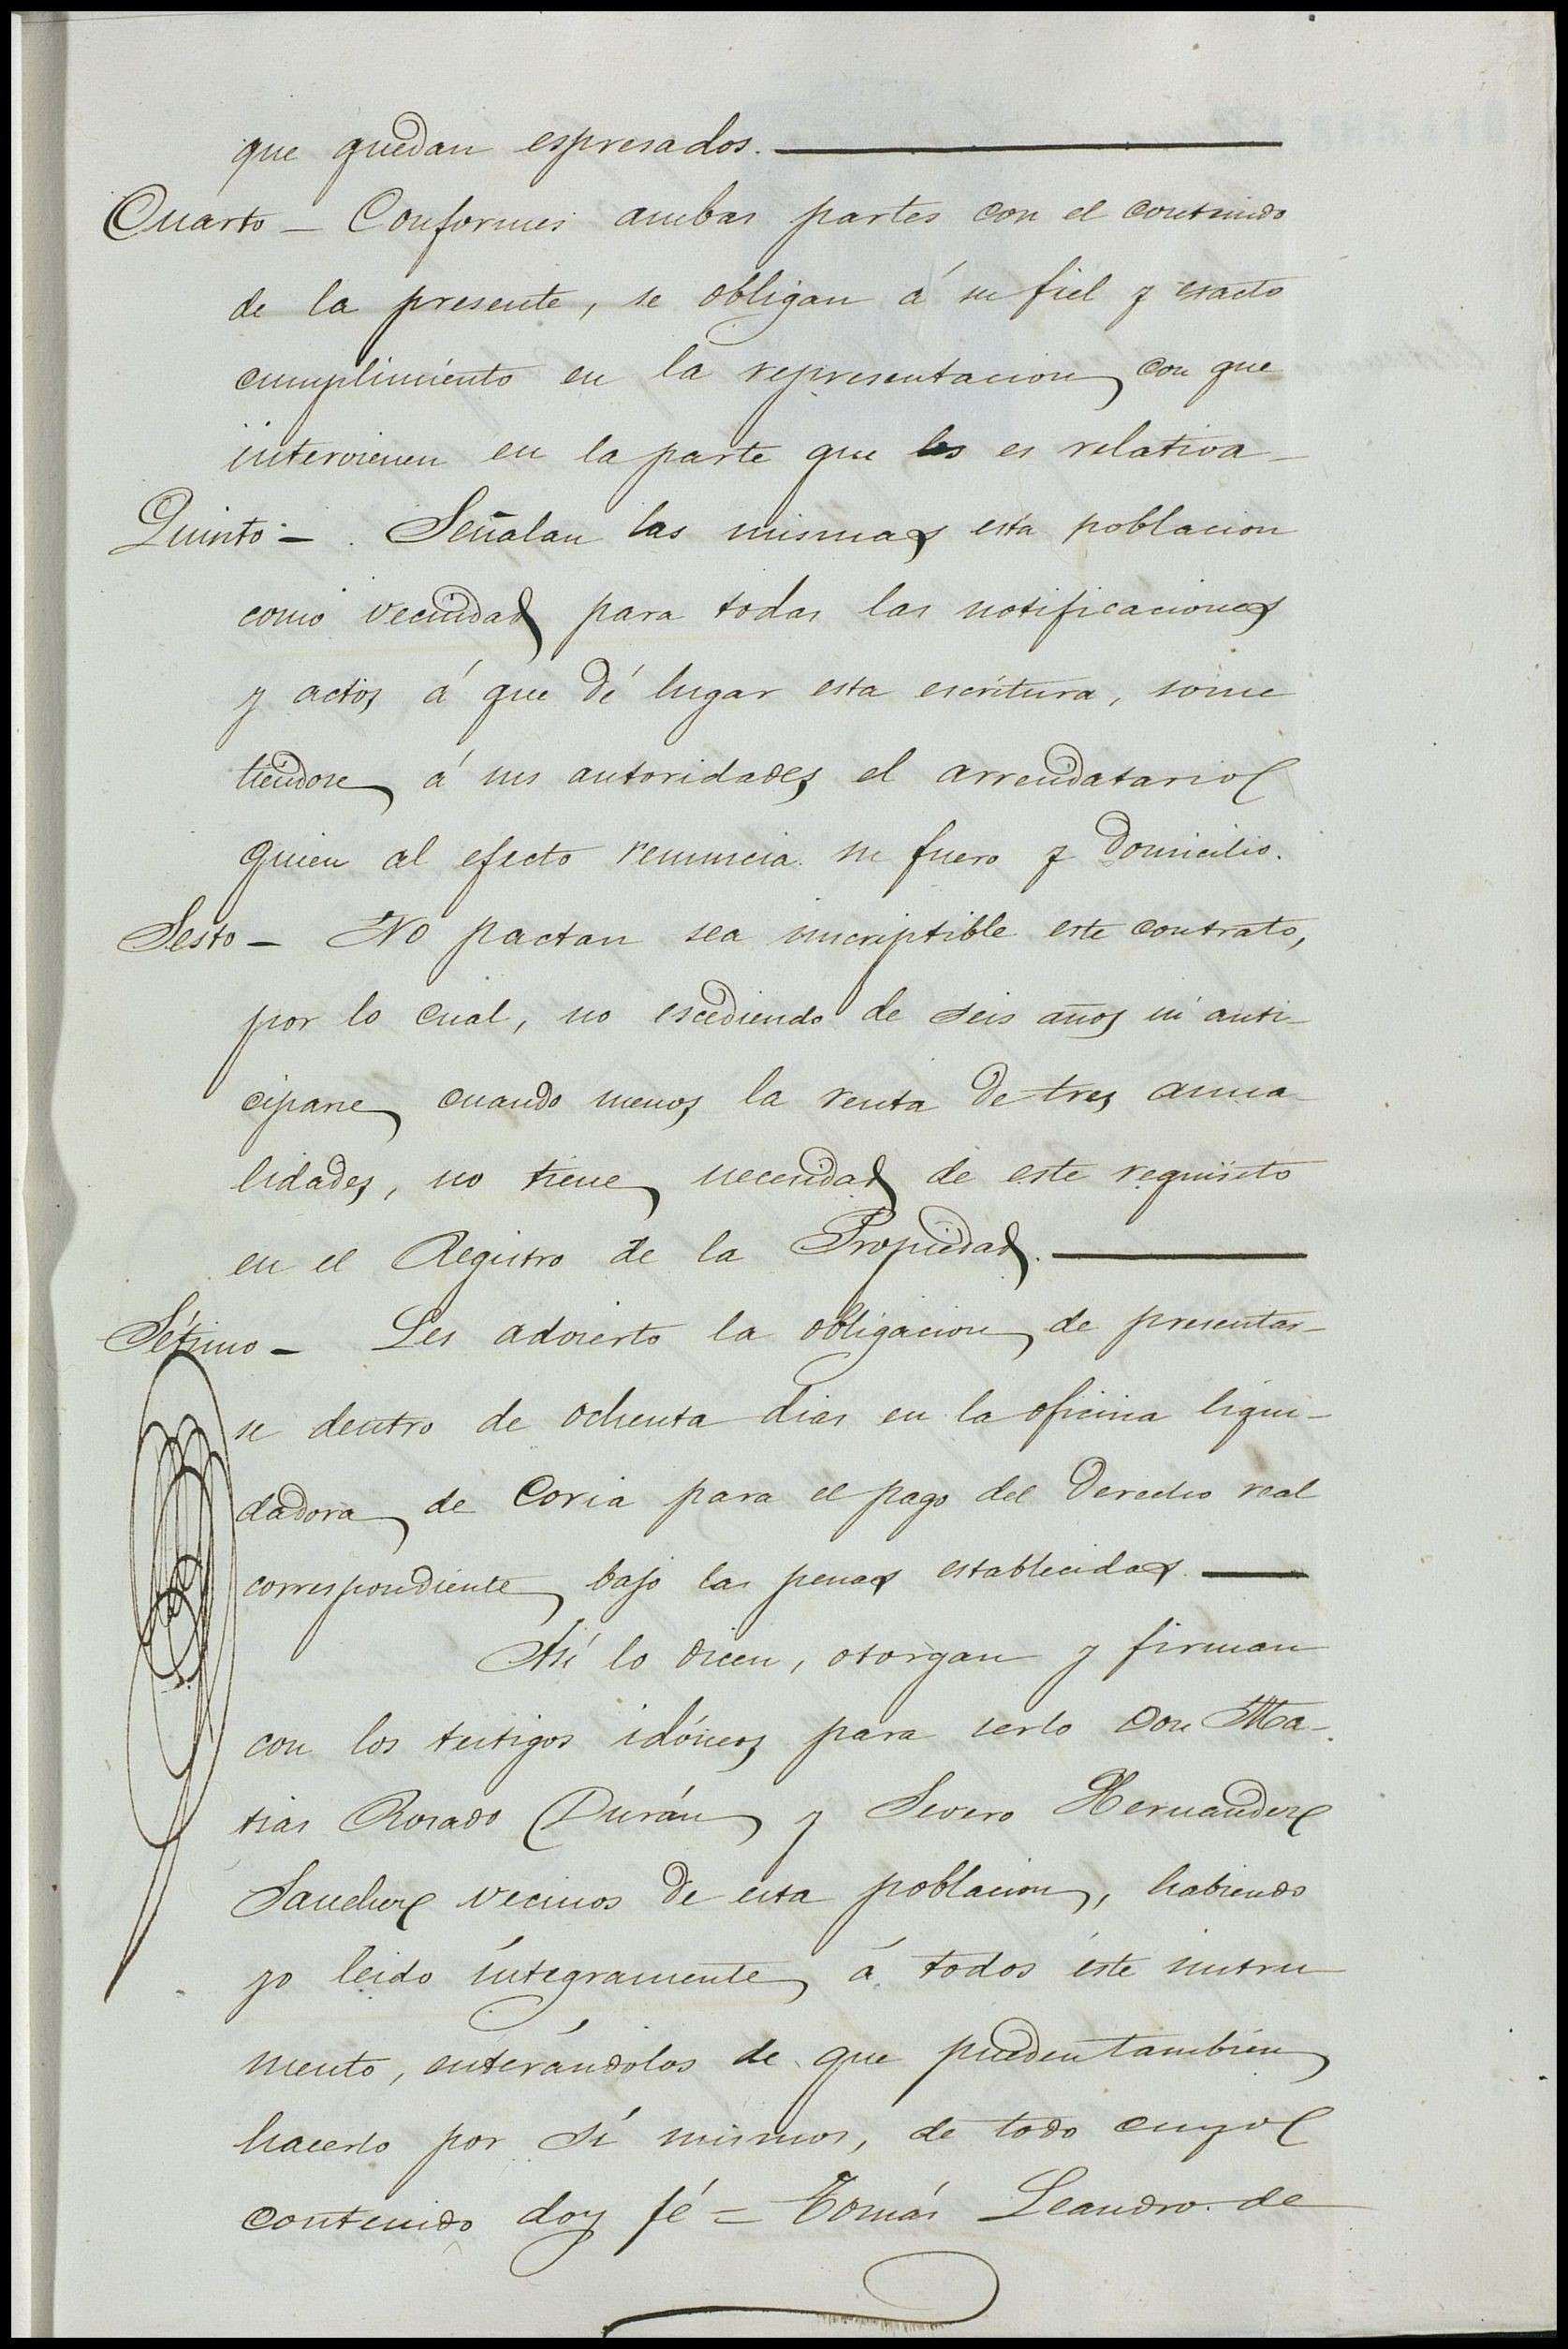 que quedan espresados.
Cuarto — Conformes ambas partes con el contenido
de la presente, se obligan á su fiel y esacto
cumplimiento en la representacion con que
intervienen en la parte que les es relativa —
Quinto — Señalan las mismas esta poblacion
como vecindad para todas las notificaciones
y actos á que dé lugar esta escritura, some
tiéndose á sus autoridades el arrendatario
quien al efecto renuncia su fuero y domicilio.
Sesto — No pactan sea inscriptible este contrato,
por lo cual, no escediendo de seis años ni anti-
ciparse cuando menos la renta de tres anua
lidades, no tiene necesidad de este requisito
en el Registro de la Propiedad.
Sétimo — Les advierto la obligacion de presentar-
se dentro de ochenta dias en la oficina liqui-
dadora de Coria para el pago del Derecho real
correspondiente bajo las penas establecidas.
Así lo dicen, otorgan y firman
con los testigos idóneos para serlo Don Ma-
tias Rosado Durán y Severo Hernandez
Sanchez vecinos de esta poblacion, habiendo
yo leido íntegramente á todos éste instru
mento, enterándolos de que pueden tambien
hacerlo por sí mismos, de todo cuyo
contenido doy fé = Tomás Leandro de